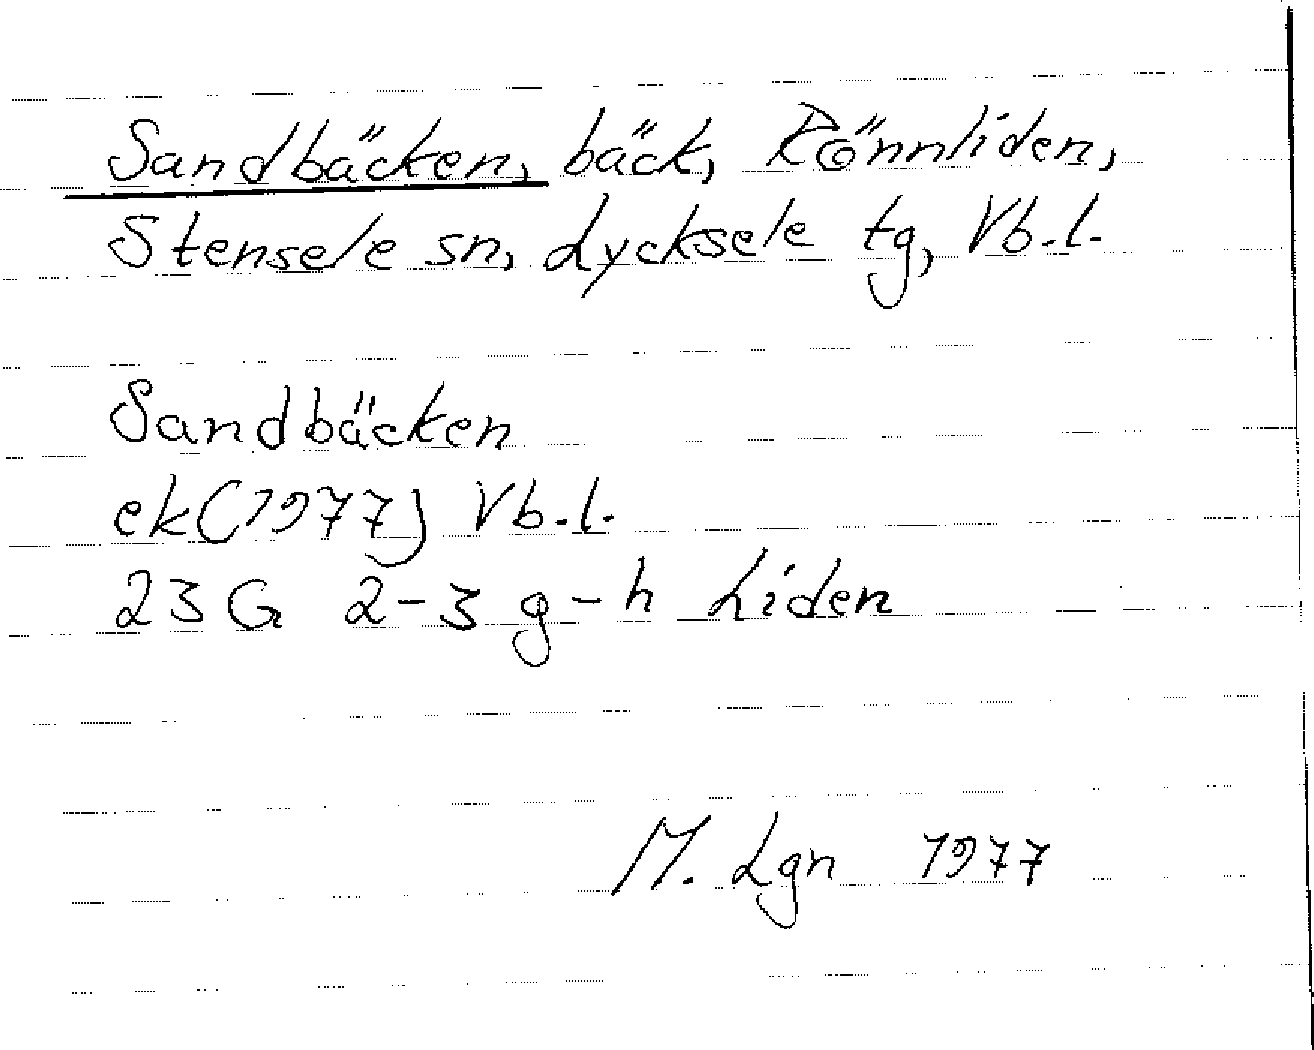 Sandbäcken, bäck, Rönnliden,
Stensele sn, Lycksele tg, Vb.l.
Sandbäcken
ek(1977) Vb.l.
23G 2-3 g-h Liden
M. Lgn 1977